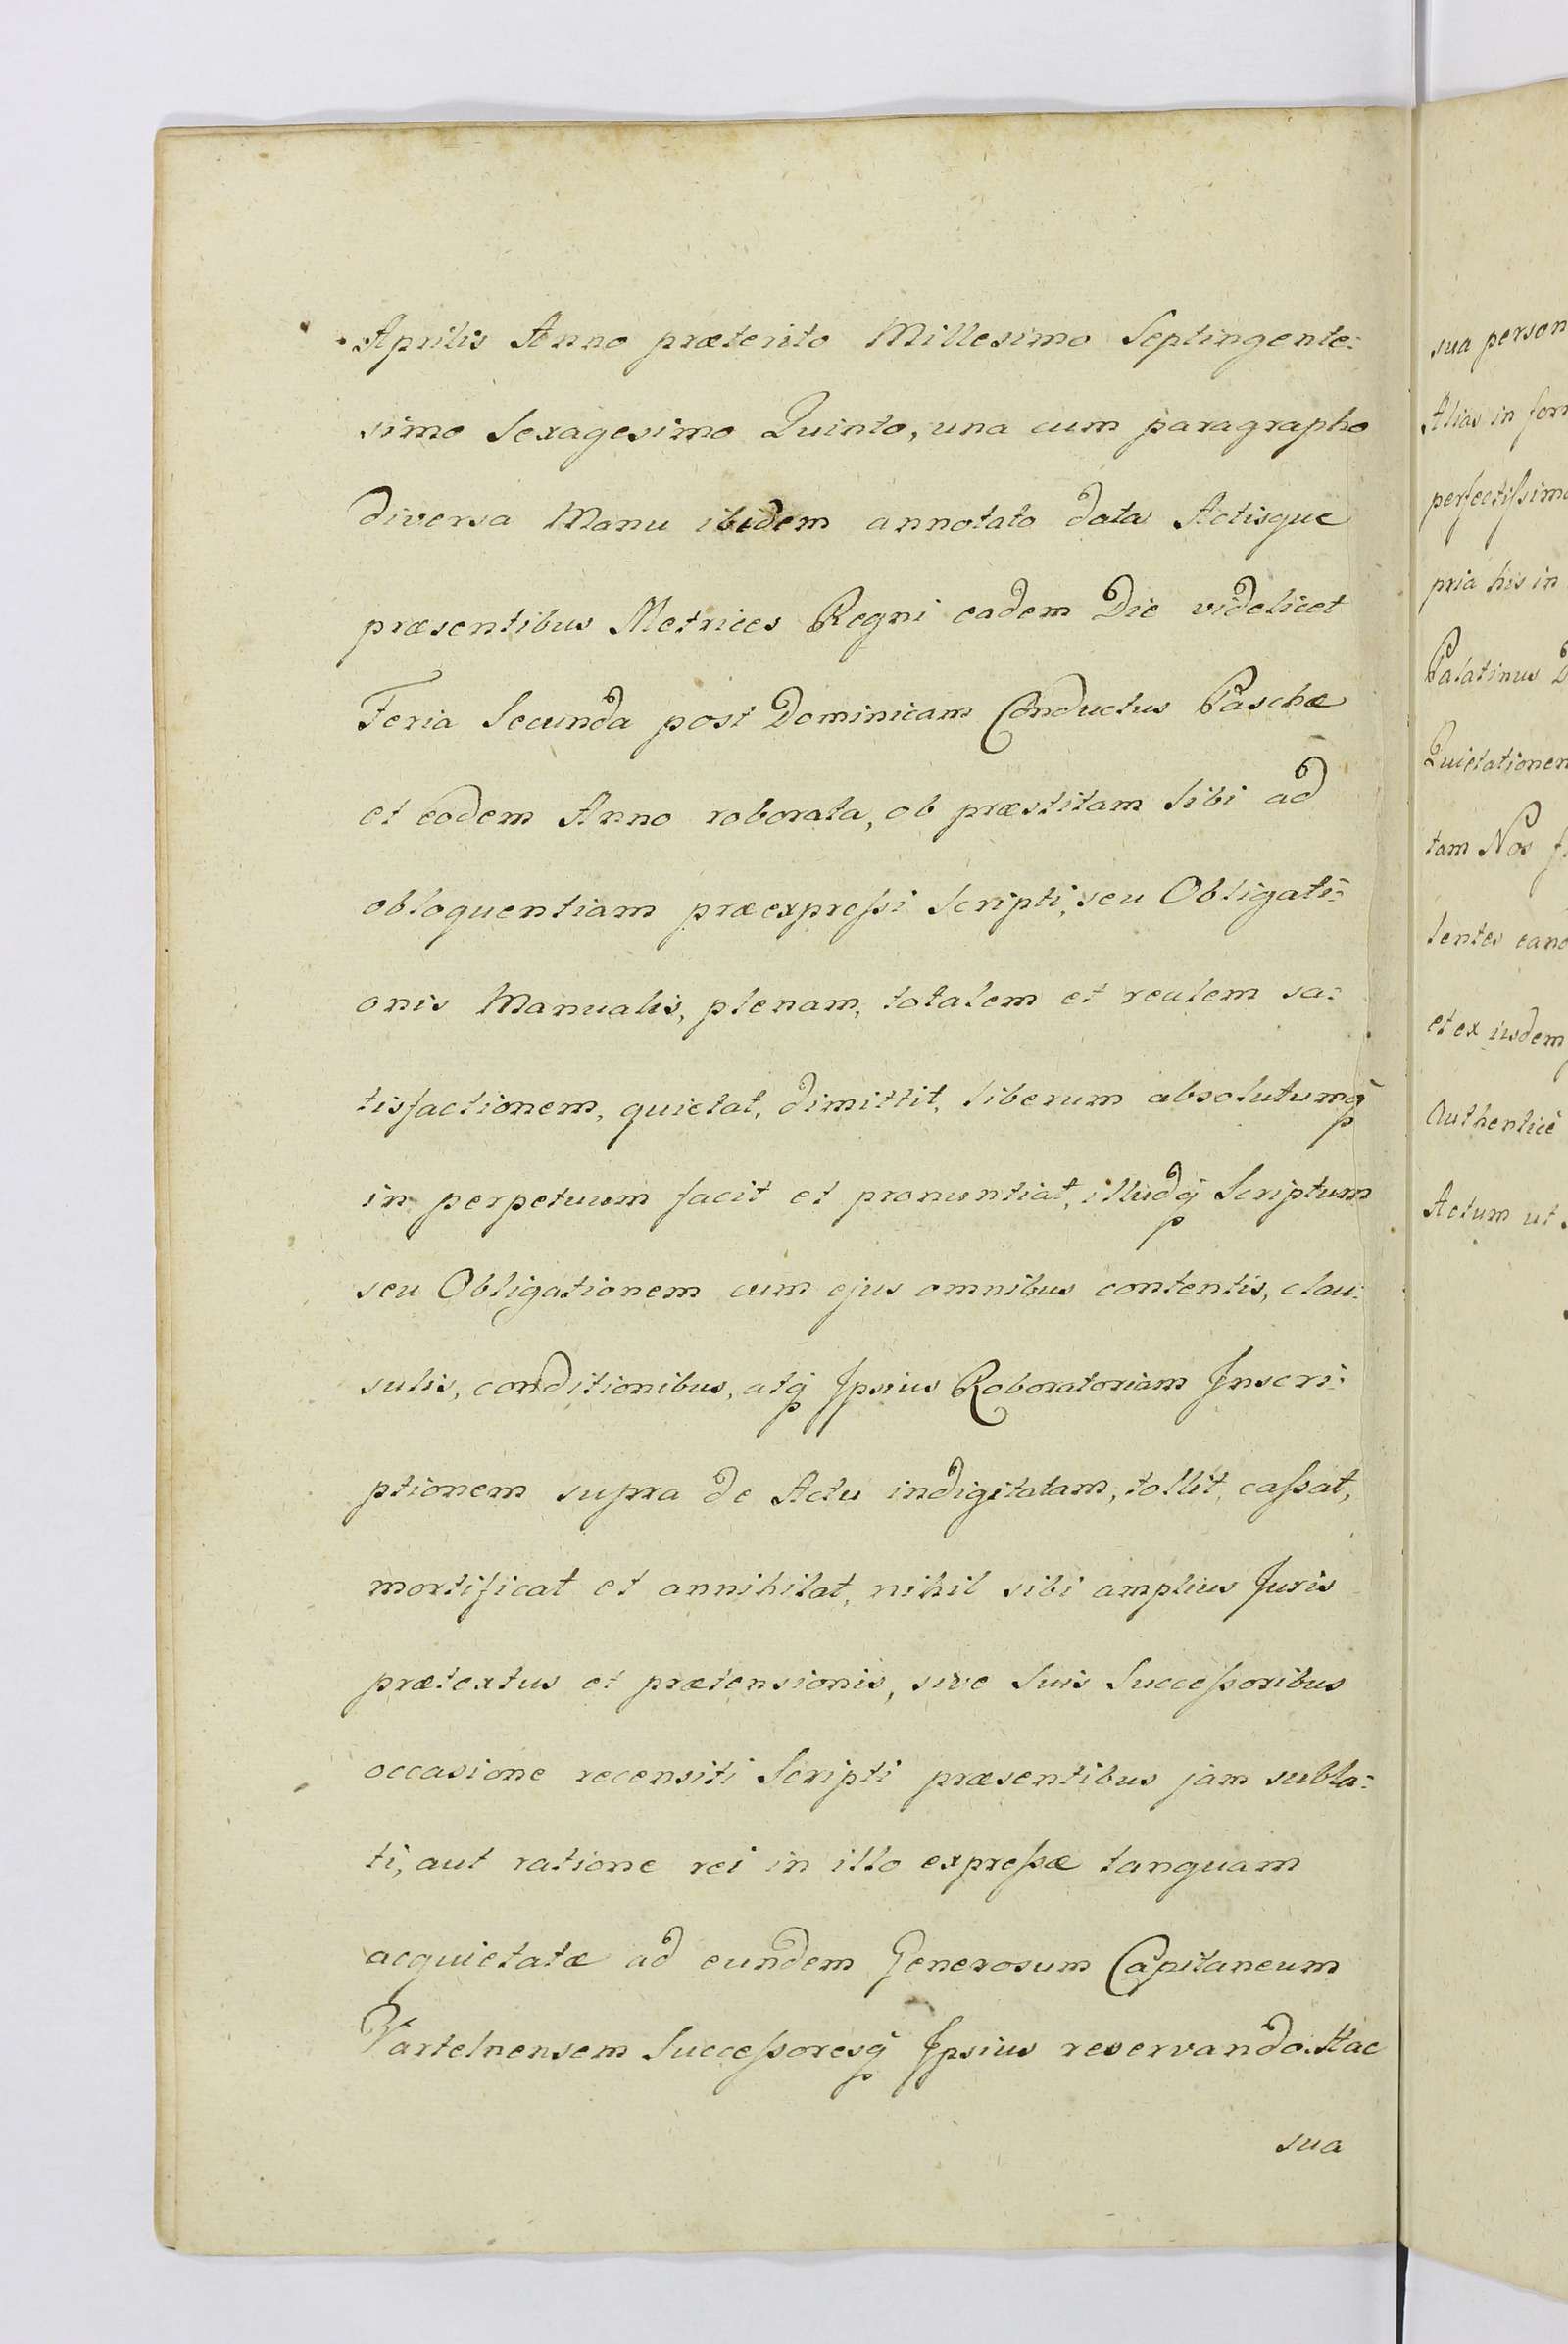 Aprilis Anno præterito Millesimo Septingente:
simo Sexagesimo Quinto, una cum paragrapho
diversa Manu ibidem annotato data Actisque
præsentibus Metrices Regni eadem Die videlicet
Feria Secunda post Dominicam Conductus Paschæ
et eodem Anno roborata, ob præstitam Sibi ad
obloquentiam præexpreſsi Scripti, seu Obligati:
onis Manualis, plenam, totalem et realem sa:
tisfactionem, quietat, dimittit, liberum absolutumq̃
in perpetuum facit et pronuntiat, illudq̃ Scriptum
seu Obligationem cum ejus omnibus contentis, clau:
sulis, conditionibus, atq̃ Ipsius Roboratoriam Inscri:
ptionem supra de Actu indigitatam, tollit, caſsat,
mortificat et annihilat, nihil sibi amplius Juris
prætextus et prætensionis, sive Suis Succeſsoribus
occasione recensiti Scripti præsentibus jam subla:
ti, aut ratione rei in illo expreſsæ tanquam
acquietatæ ad eundem Generosum Capitaneum
Vartelnensem Succeſsoresq̃ Ipsius reservando. Hac
sua
sua person
Alias in for
perfectiſsim
pria his in
Palatinus D
Quietationem
tam Nos
lentes eand
et ex iisdem
Authentice
Actum ut